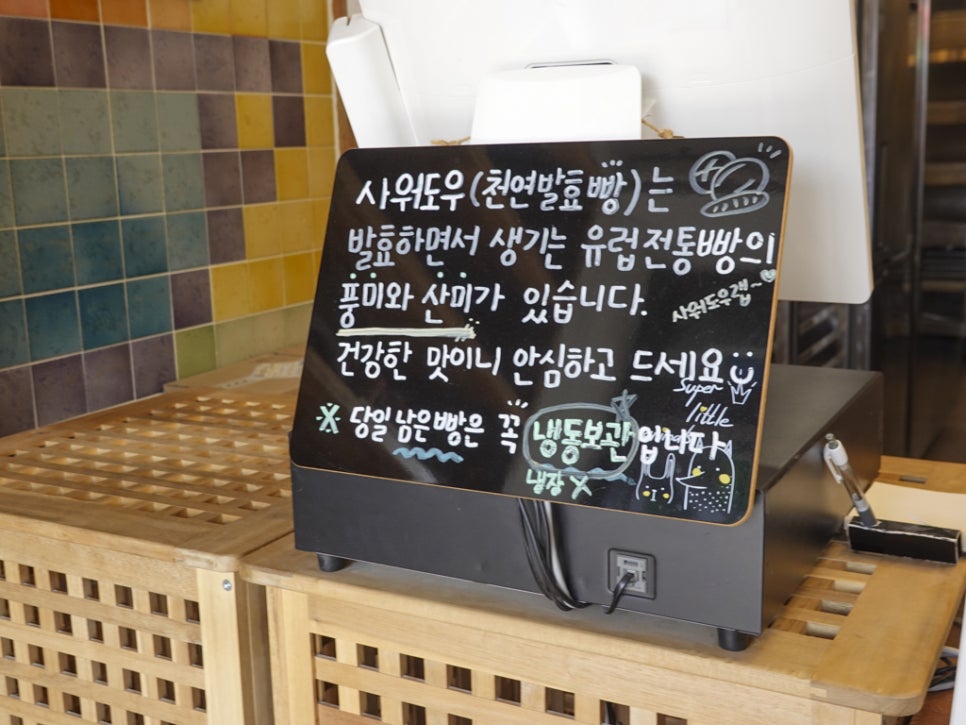 사워도우(천연발효빵)는
발효하면서 생기는 유럽전통빵의
풍미와 산미가 있습니다.
사워도우랩~
건강한 맛이니 안심하고 드세요
※ 당일 남은빵은 꼭 냉동보관입니다
냉장 X
Super
little